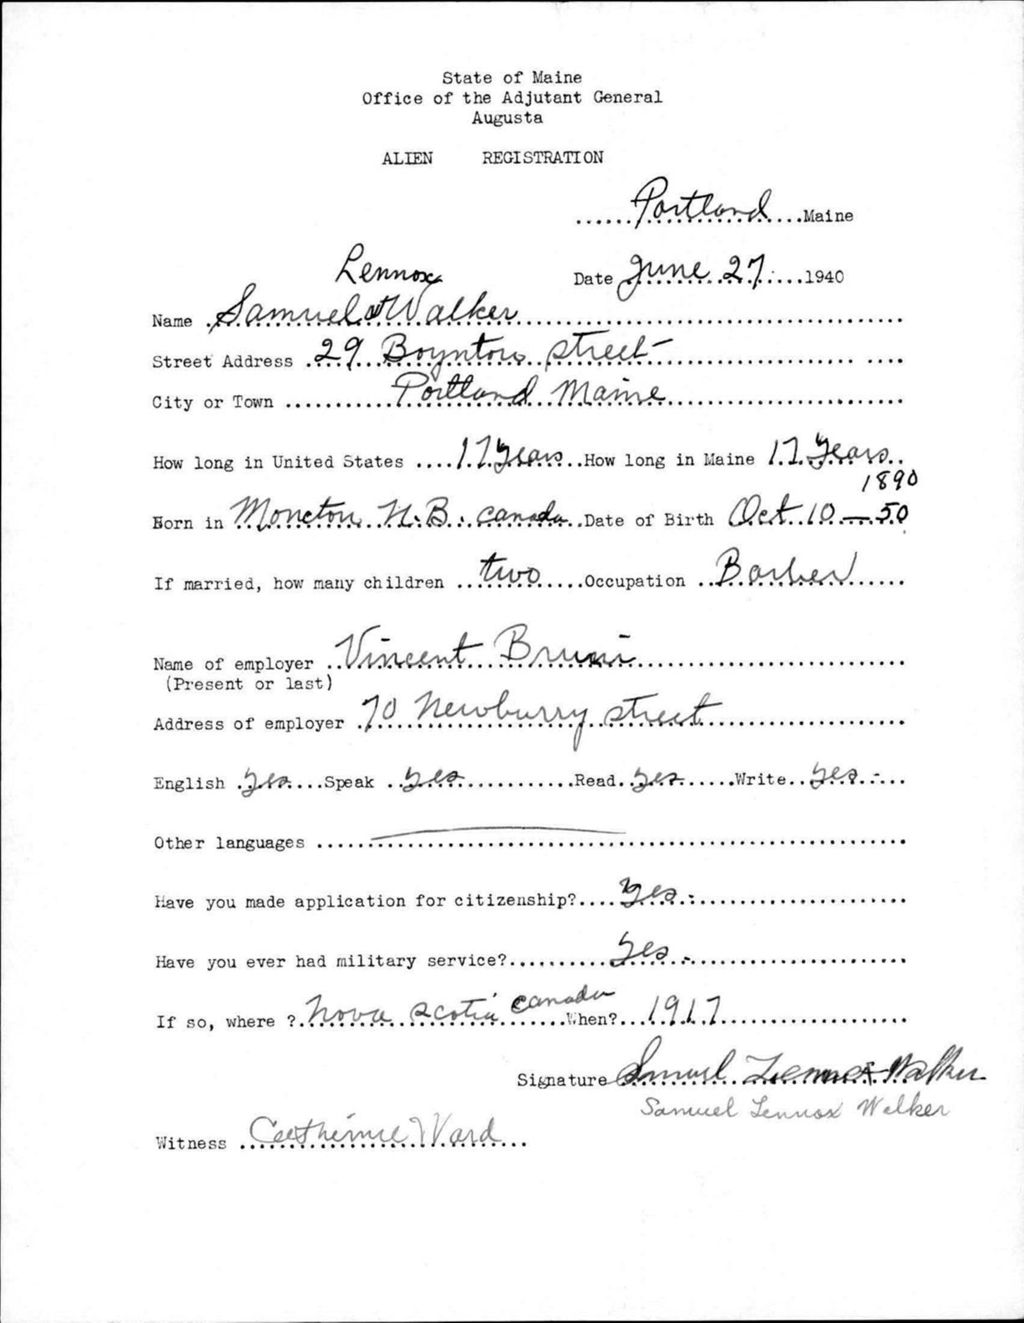 State of Maine
Office of the Adjutant General
Augusta
ALIEN REGISTRATION
......Portland....Maine
Date June 27.....1940
Lennox
Name .Samuel Walker..............................
Street Address .29 Boynton street
City or Town ...........Portland Maine...................
How long in United States ....17 years..How long in Maine 17 years..
1890
Born in Moncton N.B. Canada..Date of Birth Oct 10 — 50
If married, how many children ..two.....Occupation ..Barber......
Name of employer ..Vincent Bruni...........................
(Present or last)
Address of employer .70 Newburry street....................
English .yes....Speak ..yes............Read..yes......Write..yes....
Other languages ............................................................
Have you made application for citizenship?....Yes......................
Have you ever had military service?..........Yes......................
If so, where ?.Nova Scotia Canada......When?...1917...................
Signature Samuel Lennox Walker
Samuel Lennox Walker
Witness ..Catherine Ward...